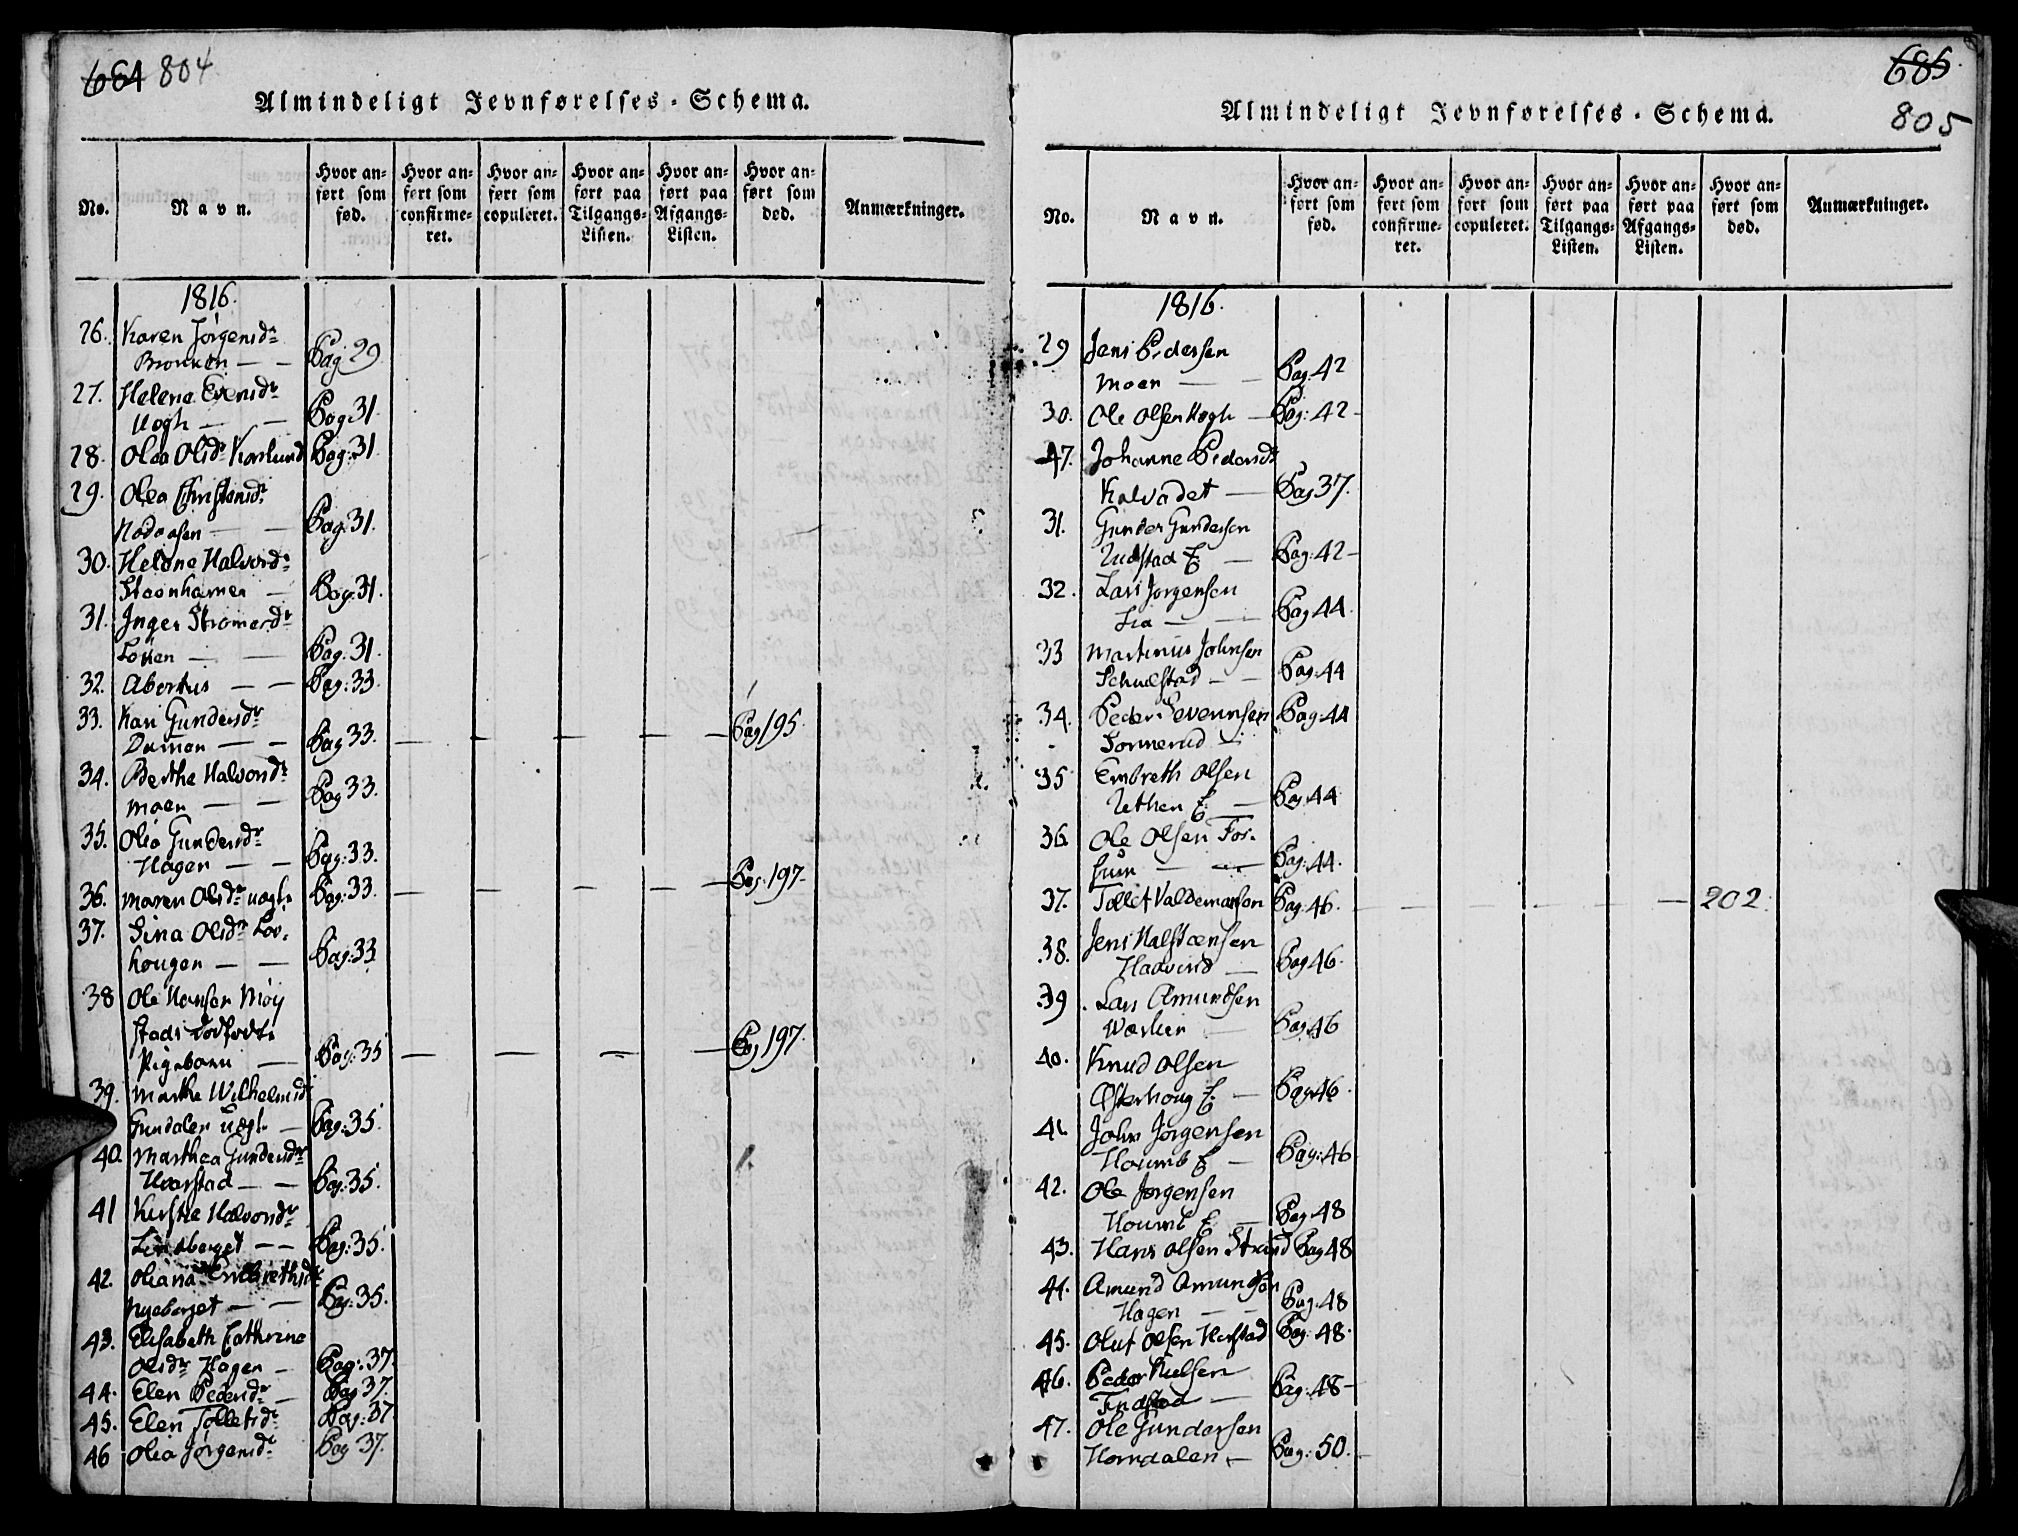 804
Almindeligt Jevnførelses-Schema.
No.
Navn.
Hvor an-
ført som
fød.
Hvor an-
ført som
confirme-
ret.
Hvor an-
ført som
copuleret.
Hvor an-
ført paa
Tilgangs-
Listen.
Hvor an-
ført paa
Afgangs-
Listen.
Hvor an-
ført som
død.
Anmærkninger.
1816.
26. Karen Jörgensdr
Pag 29
27. Helene Evensdr
Uogh — — Pag 31
28. Olea Olsdr Pag: 31
29. Olea Christensdr
Pag: 31.
30. Helene Halvorsdr
Pag: 31.
31. Inger
Löken — — Pag: 31.
32. Abortus — — Pag: 33.
33. Kari Gundersdr
— — Pag 33. — — — — — Pag 195
34. Berthe Halvorsdr
Moen — — Pag 33.
35. Olia Gundersdr
Hagen — — Pag: 33.
36. Maren Olsdr uægt. Pag: 33. — — — — — Pag: 197
37. Sina Olsdr Lov-
hougen — — Pag: 33
38 Ole Hansen Möy
stads dödfödte
Pigebarn — Pag: 35 — — — — Pag 197
39. Marthe Wilhelmsdr
Gundalen uægt. — Pag: 35.
40. Marthea Gundersdr
— — Pag: 35.
41 Kirstie Halvorsdr
— — Pag: 35.
42. Oliana Embrethsdr
Nyeberget — — Pag: 35.
43. Elisabeth Cathrine
Olsdr Hagen — Pag: 37.
44. Elen Pedersdr — Pag 37.
45. Elen Tolletsdr Pag: 37
46 Olia Jörgensdr Pag 37.
685
805
Almindeligt Jevnførelses-Schema.
No.
Navn.
Hvor an-
ført som
fød.
Hvor an-
ført som
confirme-
ret.
Hvor an-
ført som
copuleret.
Hvor an-
ført paa
Tilgangs-
Listen.
Hvor an-
ført paa
Afgangs-
Listen.
Hvor an-
ført som
død.
Anmærkninger.
1816.
29 Jens Pedersen
Moen — — Pag: 42
30. Ole Olsen — Pag: 42
47. Johanne Pedersdr
Kalvadet — Pag 37.
31. Gunder Gundersen
Pag: 42
32. Lars Jörgensen
Lia — — Pag 44
33 Martinus Johnsen
— — Pag: 44
34. Peder Pag: 44
Sormerud —
35 Embreth Olsen
Pag 44
36. Ole Olsen
— — Pag: 44.
37. Tollef Valdemarsen Pag: 46. — — — — — 202.
38. Jens Halstensen
— Pag 46.
39. Lars Amundsen
— Pag 46
40. Knud Olsen
Österhoug — Pag 46.
41 John Jörgensen
Houmb — Pag: 46
42. Ole Jörgensen
Houmb — Pag 48
43. Hans Olsen Strand Pag 48
44. Amund Amundsen
Hagen — — Pag: 48
45. Oluf Olsen Pag: 48.
46. Peder Nielsen
— Pag: 48
47. Ole Gundersen
Horndalen — Pag: 50.